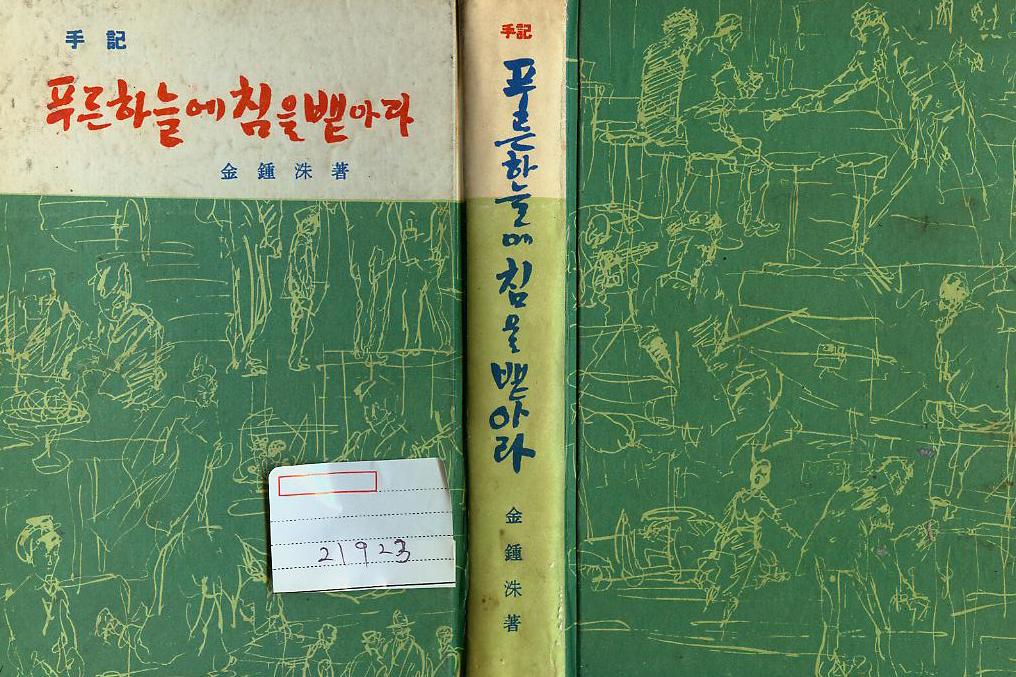 手記
푸른하늘에침을뱉아라
金鍾洙著
21923
手記
푸른하늘에침을뱉아라
金鍾洙著